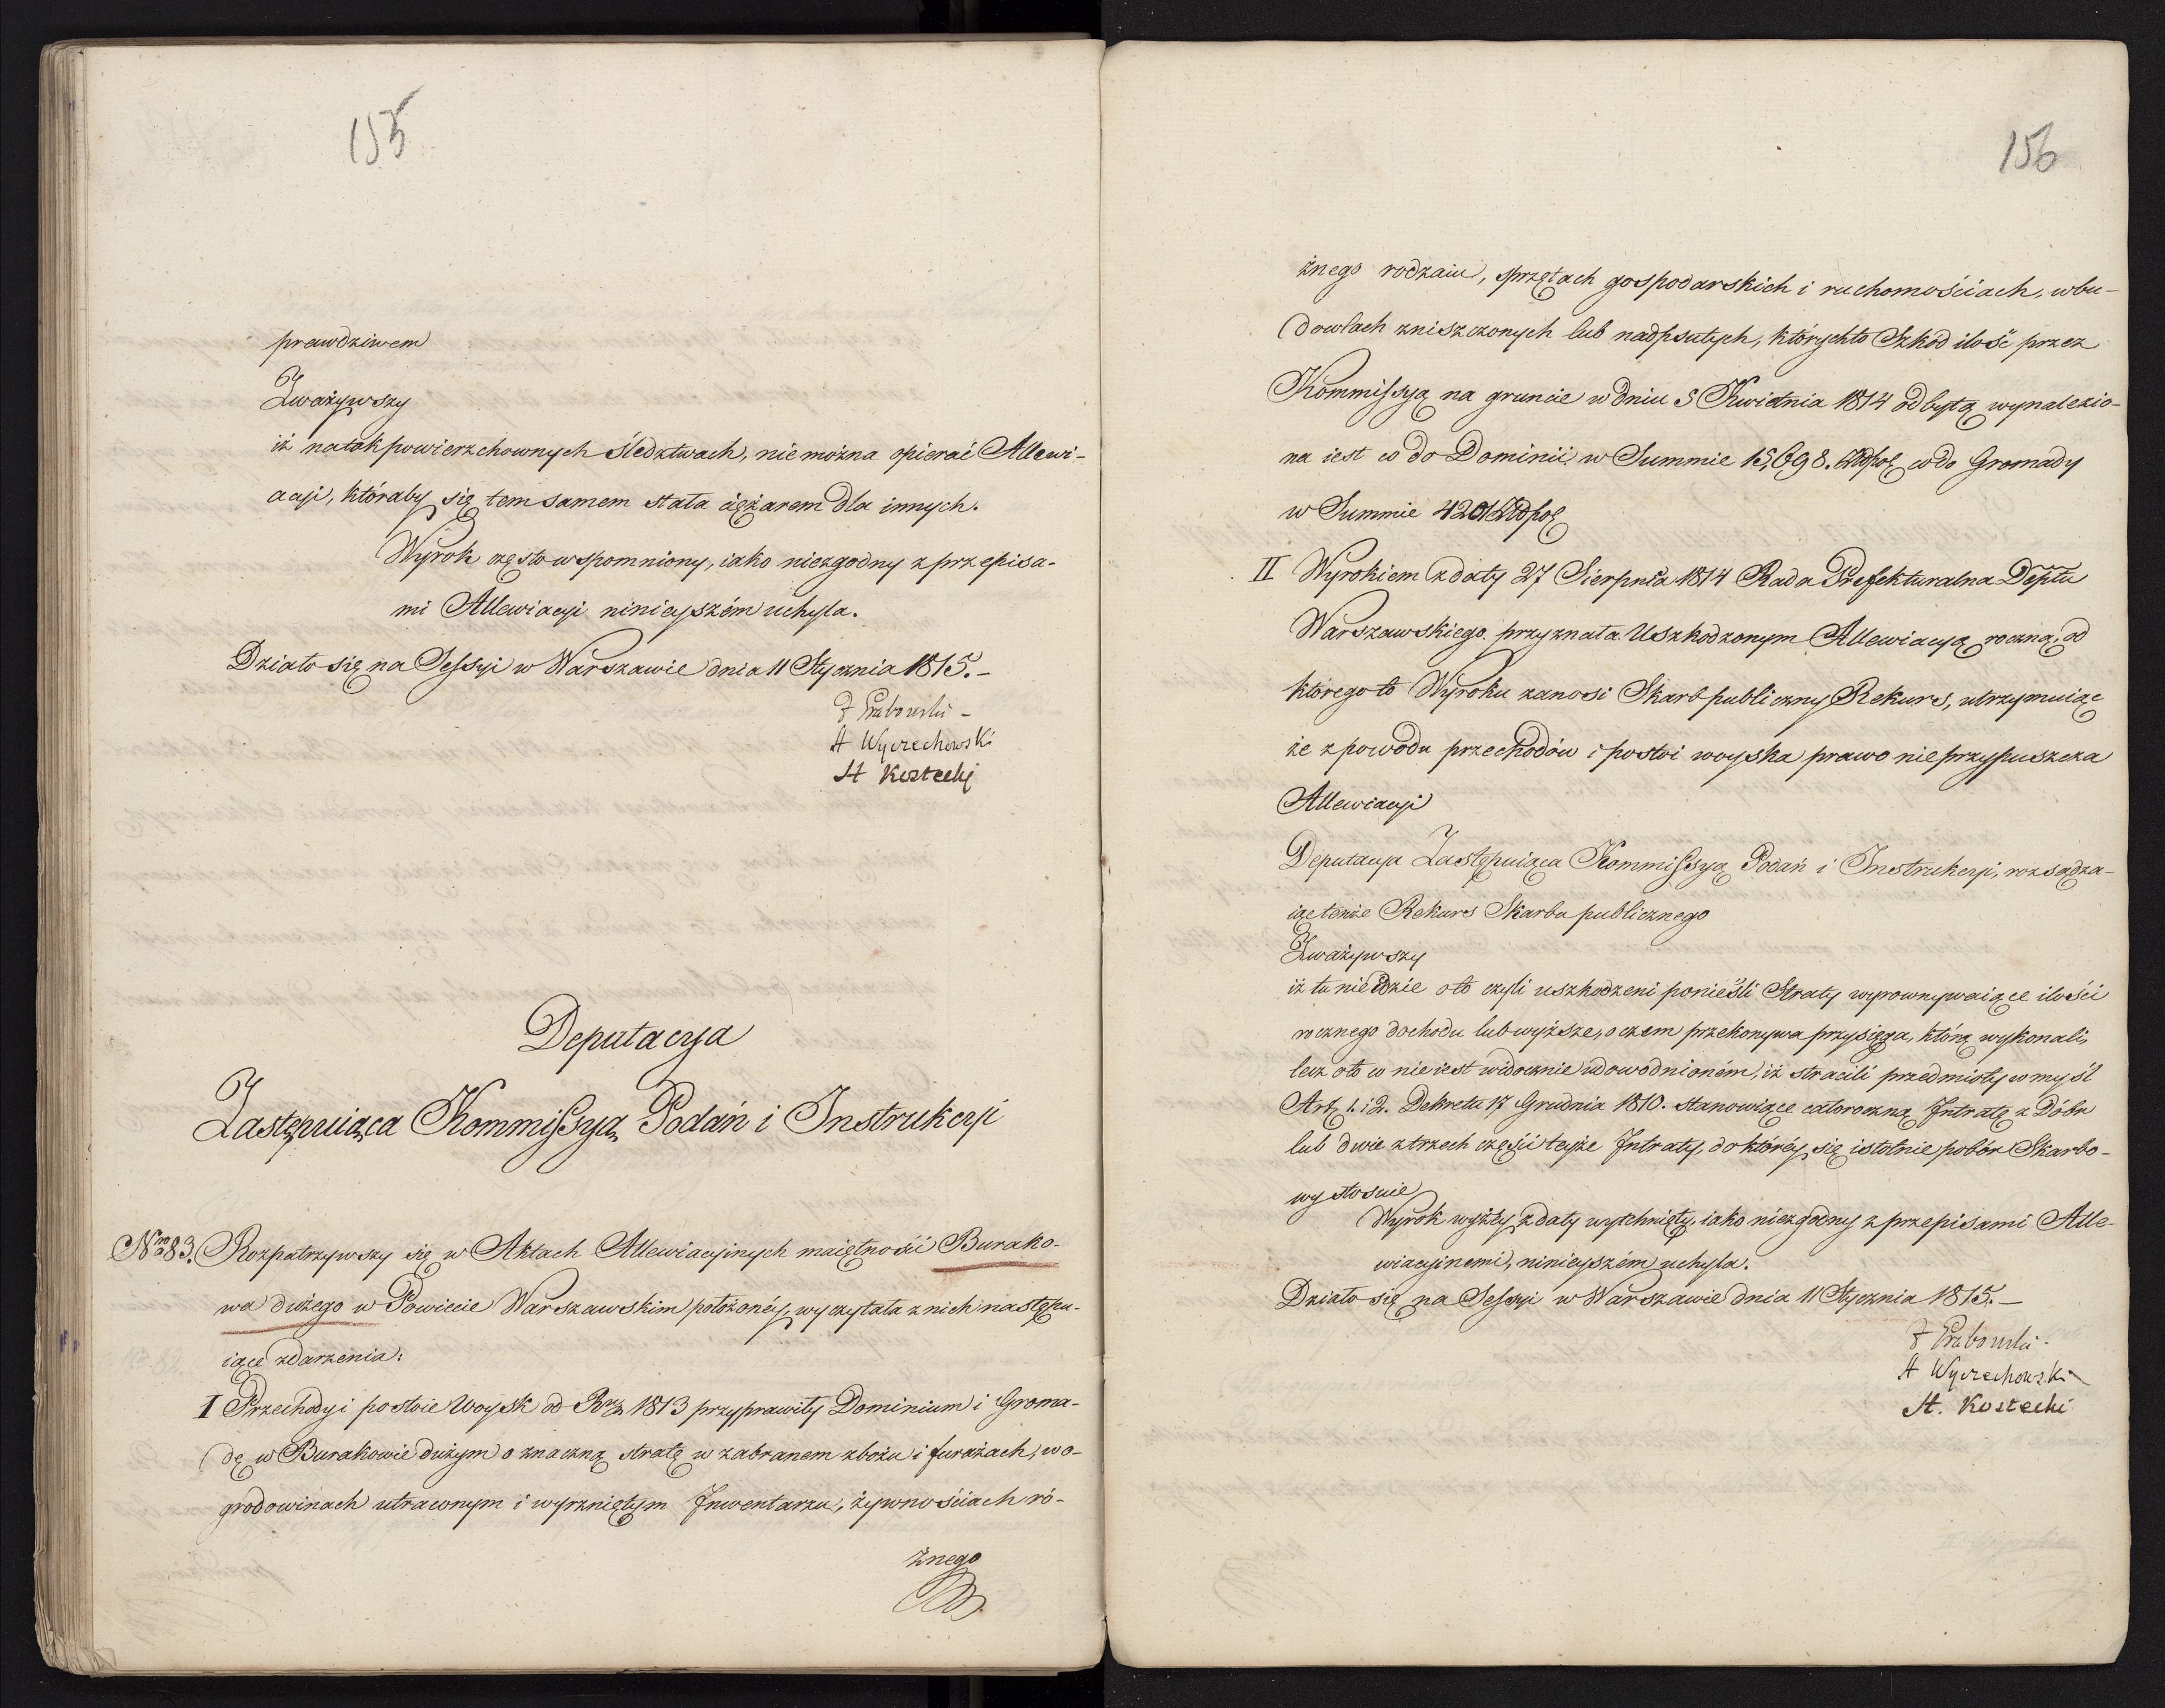 155
prawdziwem
Zważywszy
iż na tak powierzchownych śledztwach, nie można opierać Allewi-
acyi, któraby się tem samem stała ciężarem dla innych.
Wyrok często wspomniony, iako niezgodny z przepisa-
mi Allewiacyi ninieyszém uchyla.
Działo się na Sessyi w Warszawie dnia 11 Stycznia 1815. -
A Wyczechowski
St Kostecki
Deputacya
Zastępuiąca Kommissyą Podań i Instrukcyi
Nro 83. Rozpatrzywszy się w Aktach Allewiacyinych maiętności Burako-
wa dużego w Powiecie Warszawskim położonéy, wyczytała z nich następu-
iące zdarzenia:
I Przechody i postoie Woysk od Rzą 1813 przyprawiły Dominium i Groma-
dę w Burakowie dużym o znaczną stratę w zabranem zbożu i furażach, w o-
grodowinach utrawnym i wyrzniętym Inwentarzu, żywnościach ró-
żnego
156
żnego rodzaiu, sprzętach gospodarskich i ruchomościach, w bu-
dowlach zniszczonych lub nadpsutych, którychto Szkód ilość przez
Kommissyą na gruncie w dniu 5 Kwietnia 1814 odbytą wynalezio-
na iest co do Dominii w Summie 15,698. Złpol co do Gromady
w Summie 4201 Złpol
II Wyrokiem z daty 27 Sierpnia 1814 Rada Prefekturalna Deptu
Warszawskiego przyznała Uszkodzonym Allewiacyą roczną, od
którego to Wyroku zanosi Skarb publiczny Rekurs, utrzymuiąc
że z powodu przechodów i postoi woyska prawo nie przypuszcza
Allewiacyi
Deputacya Zastępuiąca Kommissyą Podań i Instrukcyi, rozsądza-
iąc tenże Rekurs Skarbu publicznego
Zważywszy
iż tu nie idzie oto czyli uszkodzeni ponieśli Straty wyrownywaiące ilości
rocznego dochodu lub wyższe, o czem przekonywa przysięga, którą wykonali,
lecz oto co nie iest widocznie udowodnioném, iż stracili przedmioty w myśl
Art. 1. i 2. Dekretu 17 Grudnia 1810. stanowiące całoroczną Intratę z Dóbr
lub dwie z trzech części teyże Intraty, do któréy się istotnie pobór Skarbo-
wy stosuie
Wyrok wyżéy z daty wytchnięty, iako niezgodny z przepisami Alle-
wiacyinemi, ninieyszém uchyla.
Działo się na Sessyi w Warszawie dnia 11 Stycznia 1815. -
A Wyczechowski
St. Kostecki